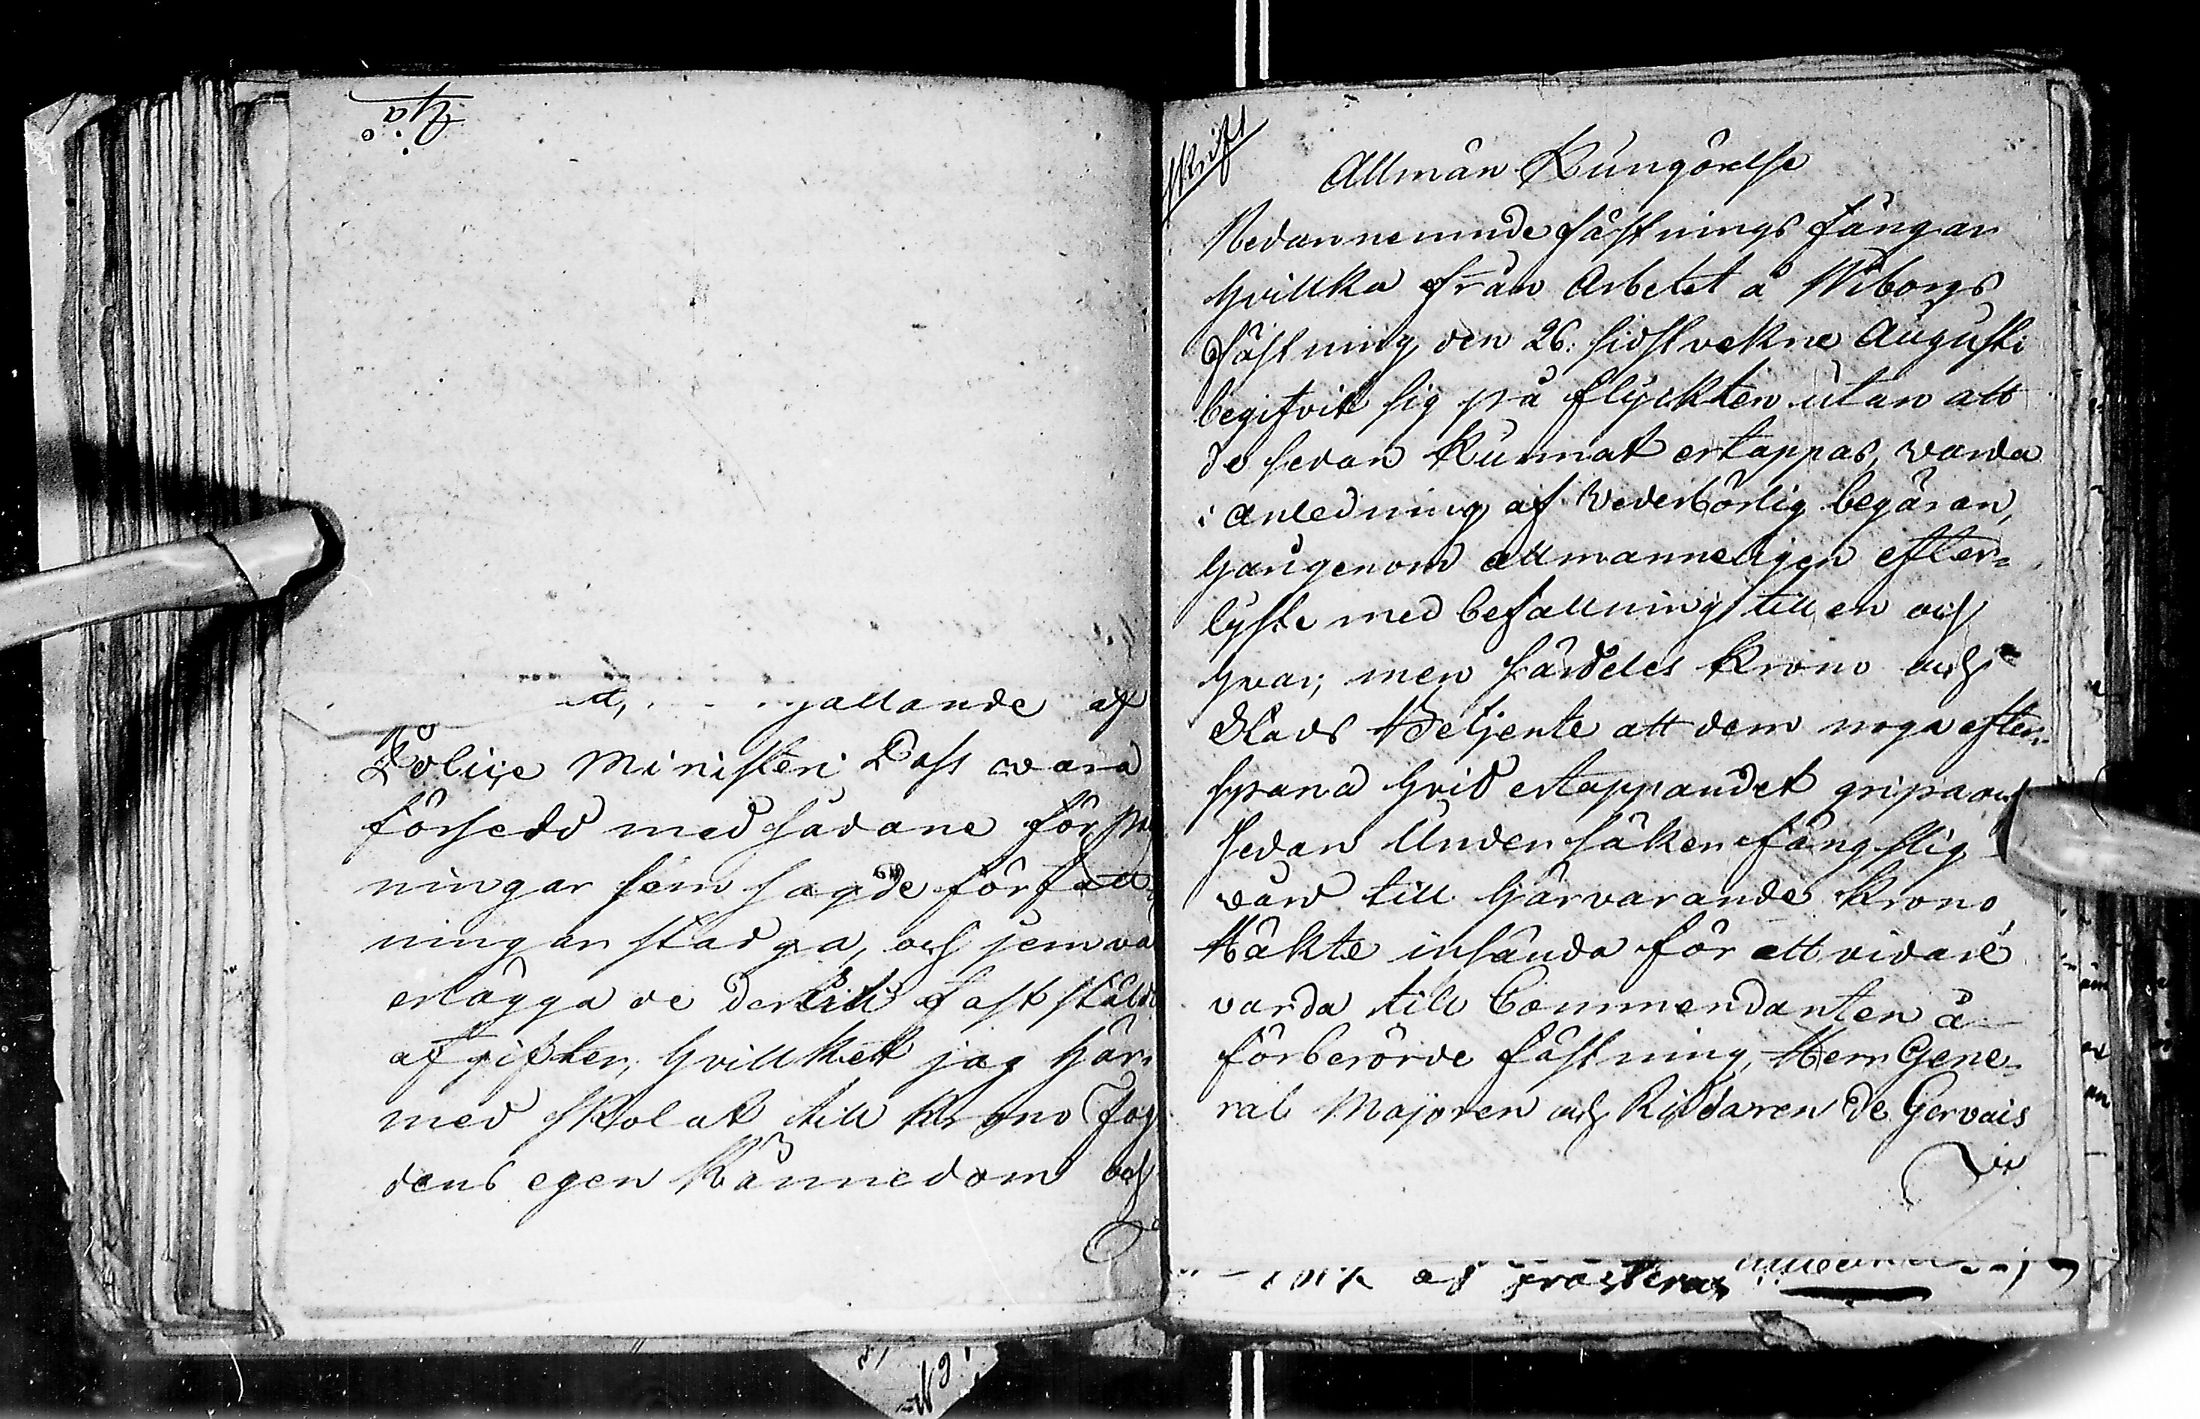 gällande af
Police Ministeri Pass wara
försedd med sådane för
ningar som sagde författ
ningar stadga, och jemwä
erlägga de dertill fastställde
afgifter, hvillket jag här
med skolat till Krono Fog
dens egen kännedom och
skrift
Allmän Kungörelse
Nedannemnde fästnings fångar
hvillka från Arbetet å Wiborgs
Fästning den 26. sidstvekne Augusti
begifvit sig på flyckten utan att
de sedan kunnat ertappas, warda
i anledning af Vederbörlig begäran,
härigenom allmänneligen efter-
lyste med befallning till en och
hvar; men särdeles Krono och
Stads Betjente att dem noga efter-
spana hvid ertappandet gripa och
sedan Under säker fångslig
vård till härvarande Krono
Häkte insända för att vidare
varda till Commendanten å
förberörde fästning, Herr Gene-
ral Majoren och Riddaren De Gervais
af